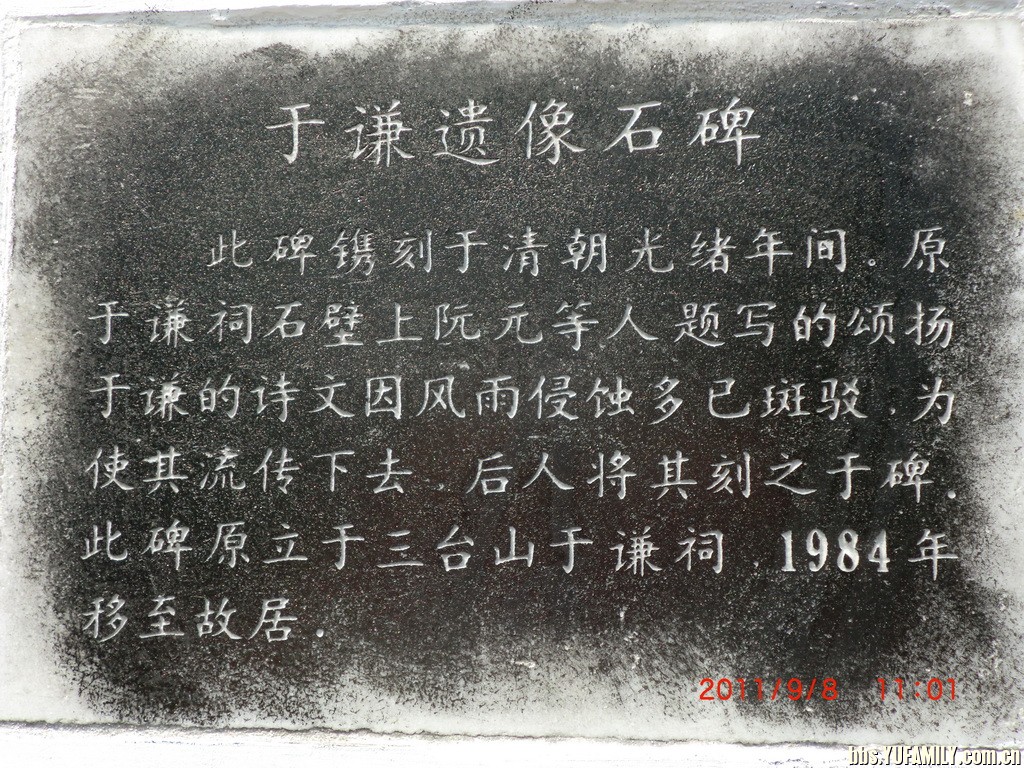 于谦遗像石碑
此碑镌刻于清朝光绪年间。原
于谦祠石壁上阮元等人题写的颂扬
于谦的诗文因风雨侵蚀多已斑驳,为
使其流传下去,后人将其刻之于碑.
此碑原立于三台山于谦祠,1984年
移至故居.
2011/9/8 11:01
bbs.YUFAMILY.com.cn